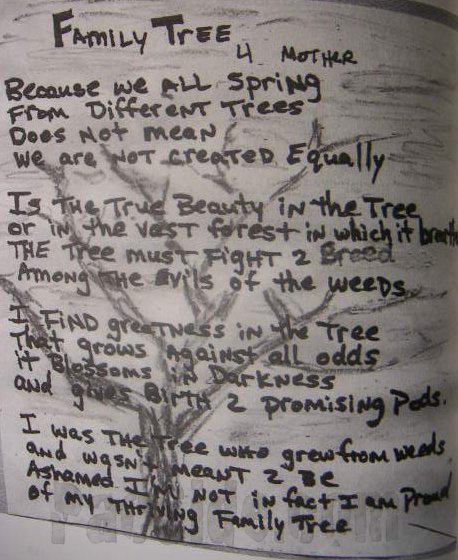 Family Tree
4 Mother
Because we all Spring
From Different Trees
Does Not mean
we are not created Equally
Is the True Beauty in the Tree
or in the vast forest in which it breath
THE Tree must Fight 2 Breed
Among The Evils of the weeds
I Find greatness in the Tree
That grows Against all odds
it Blossoms in Darkness
and gives Birth 2 promising Pods.
I was the Tree who grew from weeds
and wasn't meant 2 be
Ashamed I'm not in fact I am Proud
of my Thriving Family Tree